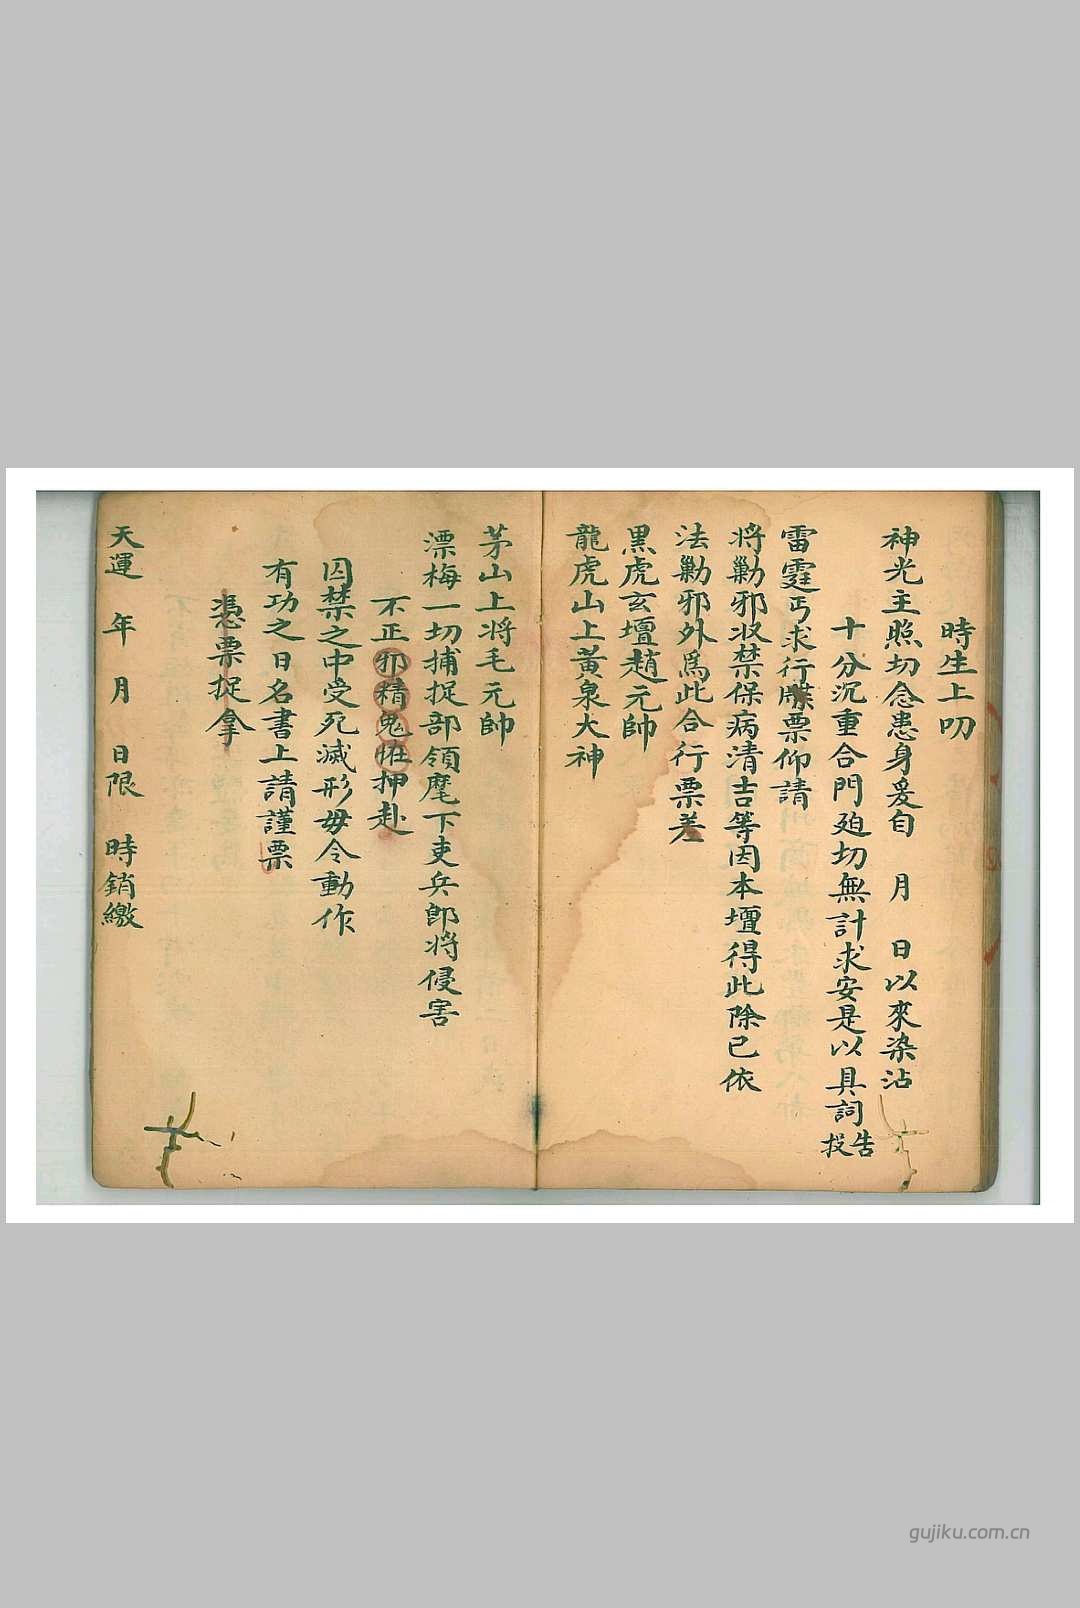 時生上叨
神光主照切念患身爰自　月　日以來染沾
十分沉重合門廹切無計求安是以具詞投告
雷霆丐求行牒票仰請
将勦邪収禁保病清吉等因本壇得此除已依
法勦邪外爲此合行票差
黑虎玄壇趙元帥
龍虎山上黃泉大神
茅山上将毛元帥
漂梅一切捕捉部領麾下吏兵郎将侵害
不正邪精鬼恠押赴
囚禁之中受死滅形毋令動作
有功之日名書上請謹票
憑票捉拿
天運　年　月　日限　時銷繳
gujiku.com.cn